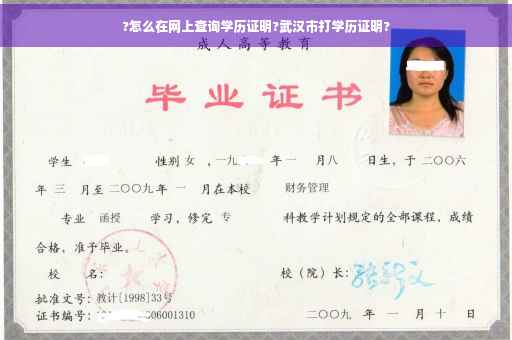 ?怎么在网上查询学历证明?武汉市打学历证明?
成人高等教育
毕业证书
学生 性别 女 ,一九 年 一 月八 日生,于 二〇〇六
年 三 月至 二〇〇九 年 一 月在本校 财务管理
专业 函授 学习,修完 专 科教学计划规定的全部课程,成绩
合格,准予毕业。
校 名: 校(院)长:
批准文号:教计[1998]33号
证书编号: 06001310 二〇〇九 年 一 月 十 日